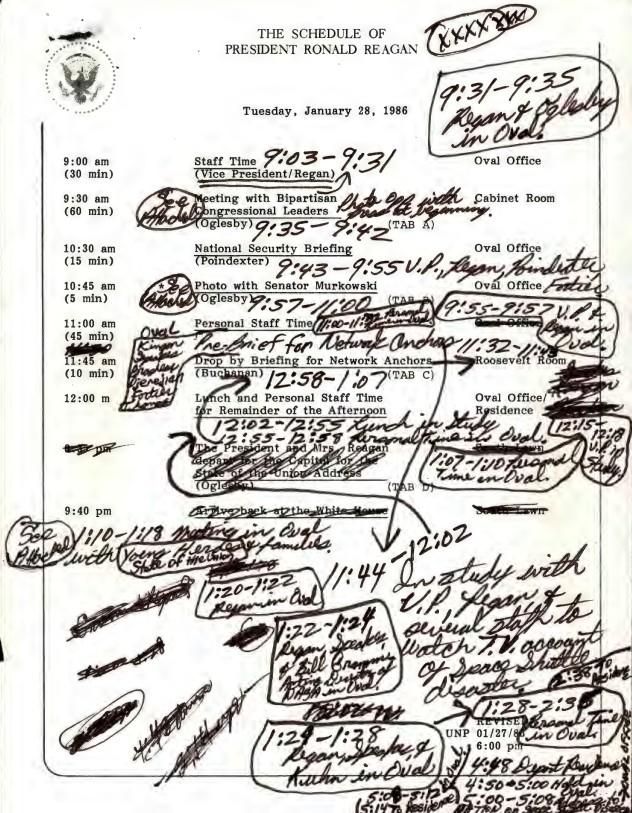 THE SCHEDULE OF
PRESIDENT RONALD REAGAN
XXXX XXX
9:31-9:35
Regan & Oglesby
in Oval.
Tuesday, January 28, 1986
9:00 am Staff Time 9:03-9:31 Oval Office
(30 min) (Vice President/Regan)
9:30 am See Meeting with Bipartisan Photo Opp. with Cabinet Room
(60 min) Attached Congressional Leaders at beginning.
(Oglesby) 9:35-9:42 (TAB A)
10:30 am National Security Briefing Oval Office
(15 min) (Poindexter) 9:43-9:55 V.P., Regan, Poindexter
Fortier
10:45 am *See Photo with Senator Murkowski Oval Office
(5 min) Attached (Oglesby) 9:57-11:00 (TAB B) 9:55-9:57 V.P. &
Regan in
Oval.
11:00 am Personal Staff Time Oval Office
(45 min) Oval Pre-Brief for Network Anchors 11:32-11:43
11:45 am Drop by Briefing for Network Anchors Roosevelt Room
(10 min) (Buchanan) 12:58-1:07 (TAB C)
Speakes
Fortier
Thomas
12:00 m Lunch and Personal Staff Time Oval Office/
for Remainder of the Afternoon Residence
12:02-12:55 Lunch in Study
12:55-12:58 Personal Time in Oval.
12:15-12:18
V.P.
Study
The President and Mrs. Reagan South Lawn
depart for the Capitol for the
State of the Union Address
(Oglesby) (TAB D)
1:07-1:10 Personal
Time in Oval.
9:40 pm Arrive back at the White House South Lawn
See
Attached
1:10-1:18 Meeting in Oval
with Young Heroes & families.
State of the Union
1:20-1:22
Regan in Oval
11:44-12:02
In study with
V.P., Regan &
several staff to
watch T.V. account
of Space Shuttle
disaster.
1:22-1:24
Regan, Speakes,
& Bill Graham,
Acting Director of
NASA in Oval.
1:24-1:28
Regan, Speakes, &
Kuhn in Oval
2:38 to
Residence
1:28-2:38
Personal Time
in Oval.
REVISED
UNP 01/27/86
6:00 pm
4:48 Depart Residence
4:50-5:00 Hold in
Oval.
5:00-5:08 Address to
Nation on Space Shuttle
5:08-5:12
5:14 To Residence